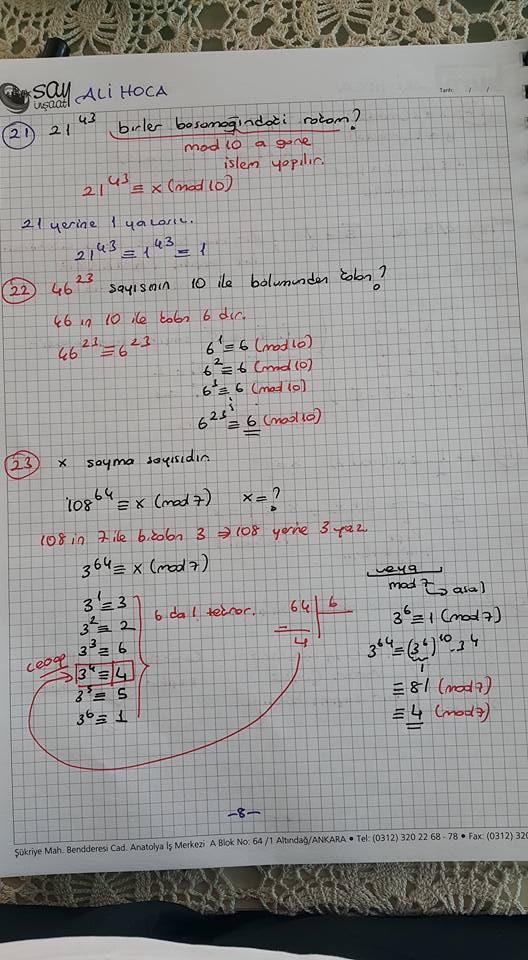 say
inşaat
ALİ HOCA
Tarih: / /
21 21^43 birler basamağındaki rakam?
mod 10 a göre
işlem yapılır.
21^43 ≡ x (mod 10)
21 yerine 1 yazarız.
21^43 ≡ 1^43 ≡ 1
22 46^23 sayısının 10 ile bölümünden kalan?
46 in 10 ile kalan 6 dır.
46^23 ≡ 6^23
6^1 ≡ 6 (mod 10)
6^2 ≡ 6 (mod 10)
6^3 ≡ 6 (mod 10)
6^23 ≡ 6 (mod 10)
23 x sayma sayısıdır.
108^64 ≡ x (mod 7) x = ?
108 in 7 ile b. kalan 3 ⇒ 108 yerine 3 yaz.
3^64 ≡ x (mod 7)
3^1 ≡ 3
3^2 ≡ 2
3^3 ≡ 6
cevap
3^4 ≡ 4
3^5 ≡ 5
3^6 ≡ 1
6 da 1 tekrar.
64 | 6
4
veya
mod 7 → asal
3^6 ≡ 1 (mod 7)
3^64 ≡ (3^6)^10 · 3^4
1
≡ 81 (mod 7)
≡ 4 (mod 7)
-8-
Şükriye Mah. Bendderesi Cad. Anatolya İş Merkezi A Blok No: 64 /1 Altındağ/ANKARA • Tel: (0312) 320 22 68 - 78 • Fax: (0312) 320